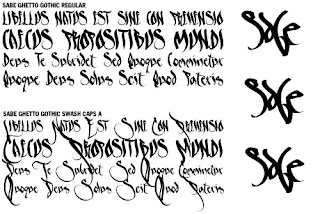 SABE GHETTO GOTHIC REGULAR
LIBELLUS NATUS EST SINE CON PREHENSIO
CAECUS PROPOSITIBUS MUNDI
Deus Te Subridet Sed Quoque Commemtur
Quoque Deus Solus Scit Quod Pateris
SABE GHETTO GOTHIC SWASH CAPS A
LIBELLUS NATUS EST SINE CON PREHENSIO
CAECUS PROPOSITIBUS MUNDI
Deus Te Subridet Sed Quoque
Quoque Deus Solus Scit Quod Pateris
Sabe
Sabe
Sabe